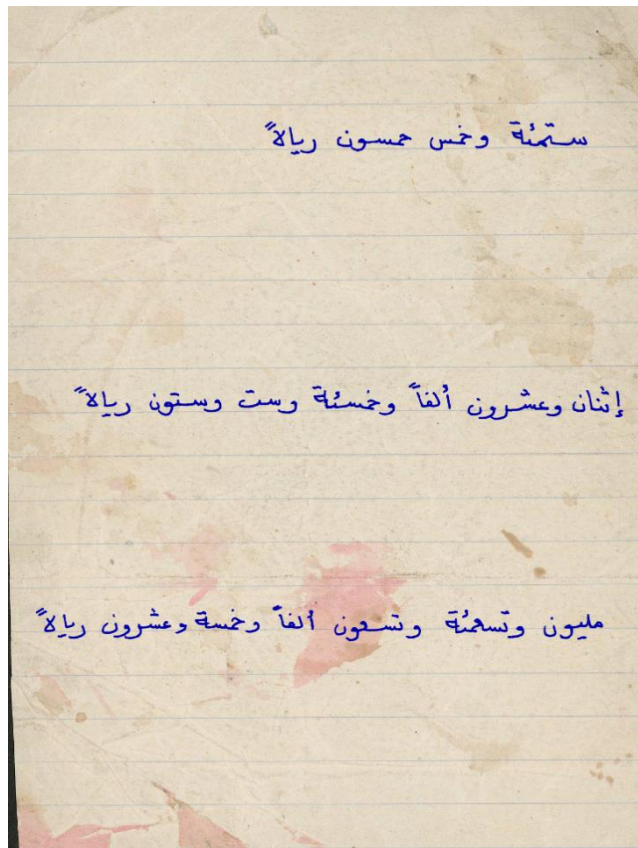 ستمئة وخمس خمسون ريالاً
إثنان وعشرون ألفاً وخمسئة وست وستون ريالاً
مليون وتسعمئة وتسعون ألفاً وخمسة وعشرون ريالاً